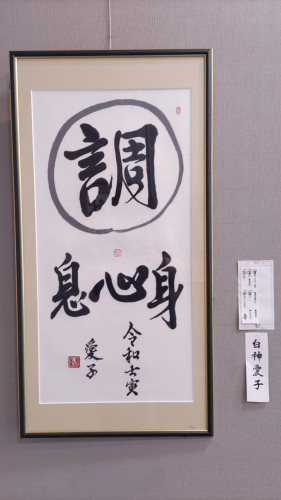 調
身心息
令和壬寅
愛子
白神愛子